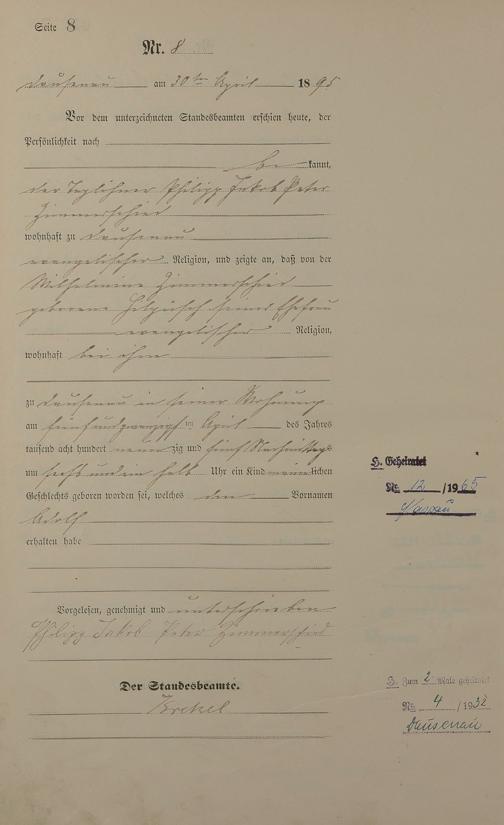 Seite 8
Nr. 8
Dausenau am 30ten April 1895
Vor dem unterzeichneten Standesbeamten erschien heute, der
Persönlichkeit nach
be kannt,
der Taglöhner Philipp Jakob Peter
Zimmerschied
wohnhaft zu Dausenau
evangelischer Religion, und zeigte an, daß von der
Wilhelmine Zimmerschied
geborene seiner Ehefrau
evangelischer Religion,
wohnhaft bei ihm
zu Dausenau in seiner Wohnung
am fünfundzwanzigsten April des Jahres
tausend acht hundert neunzig und fünf Nachmittags
um sechs und ein halb Uhr ein Kind männlichen
Geschlechts geboren worden sei, welches den Vornamen
Adolf
erhalten habe
Vorgelesen, genehmigt und unterschrieben
Philipp Jakob Peter Zimmerschied
Der Standesbeamte.
H. Geheiratet
Nr. 12/1965
Nassau
H. Zum 2 Male geheiratet
Nr. 4/1932
Dausenau